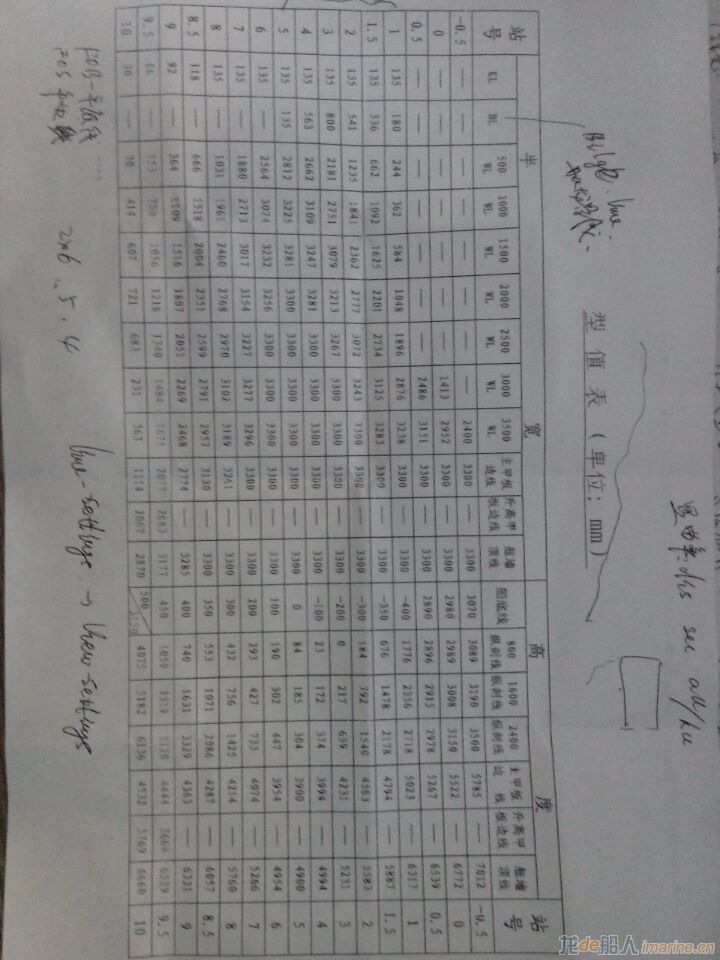 Bilge line:
型 值 表 (单位: mm)
站号 半 宽 高 度 站号
KL BL 500 WL 1000 WL 1500 WL 2000 WL 2500 WL 3000 WL 3500 WL 主甲板边线 升高甲板边线 舷墙顶线 船底线 800 纵剖线 1600 纵剖线 2400 纵剖线 主甲板边线 升高甲板边线 舷墙顶线
-0.5 — — — — — — — — 2400 3300 — 3300 3070 3089 3190 3500 5785 — 7012 -0.5
0 — — — — — — — 1413 2952 3300 — 3300 2980 2989 3008 3150 5522 — 6772 0
0.5 — — — — — — — 2486 3151 3300 — 3300 2890 2896 2915 2978 5267 — 6539 0.5
1 135 180 244 362 584 1048 1896 2876 3238 3300 — 3300 -400 1776 2356 2718 5023 — 6317 1
1.5 135 336 662 1092 1625 2201 2734 3125 3283 3300 — 3300 -350 676 1478 2178 4794 — 5887 1.5
2 135 541 1235 1841 2362 2777 3072 3243 3300 3300 — 3300 -300 184 792 1540 4583 — 5583 2
3 135 800 2181 2751 3079 3213 3267 3300 3300 3300 — 3300 -200 0 217 659 4231 — 5231 3
4 135 563 2662 3109 3247 3281 3300 3300 3300 3300 — 3300 -100 23 172 374 3994 — 4994 4
5 135 135 2812 3225 3281 3300 3300 3300 3300 3300 — 3300 0 84 185 304 3900 — 4900 5
6 135 — 2564 3074 3232 3256 3300 3300 3300 3300 — 3300 100 190 302 447 3954 — 4954 6
7 135 — 1880 2713 3017 3154 3227 3277 3296 3300 — 3300 200 293 427 733 4074 — 5266 7
8 135 — 1031 1961 2460 2768 2970 3102 3189 3261 — 3300 300 432 756 1425 4214 — 5760 8
8.5 118 — 666 1518 2004 2351 2599 2791 2957 3130 — 3300 350 553 1071 2086 4287 — 6057 8.5
9 92 — 364 1109 1516 1807 2051 2269 2468 2774 — 3285 400 740 1631 3329 4363 — 6331 9
9.5 66 — 153 1056 1218 1340 1484 1671 2077 2683 3177 450 1059 3359 4444 5064 6529 9.5
10 30 — 30 414 607 721 683 231 363 1114 2067 2870 500 3150 4075 5182 6136 4532 5769 6660 10
2x6 .5.4
龙de船人 imarine.cn